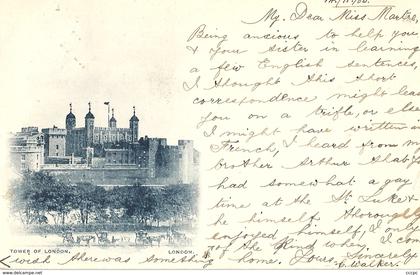 My Dear Miss Martre,
Being anxious to help you
& your sister in learning
a few English sentences,
I thought this short
correspondence might lead
you on a trifle, or else
I might have written in
French, I heard from my
brother Arthur that he
had somewhat a gay
time at the St Luke &
he himself thoroughly
enjoyed himself, I only
wish there was something of the kind when I come
home. Yours Sincerely
C. Walker.
TOWER OF LONDON.
LONDON.